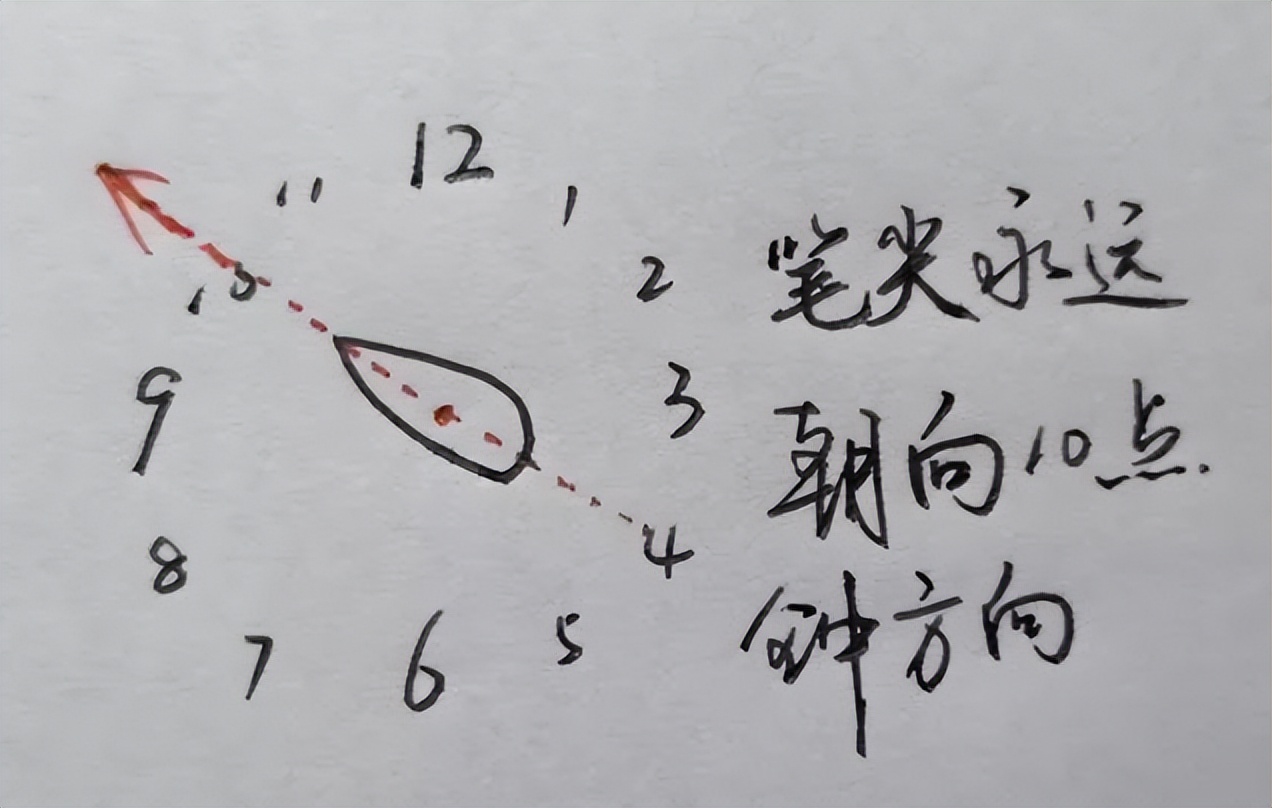 12
11
1
10
2
9
3
8
4
7
6
5
笔尖永远
朝向10点
钟方向